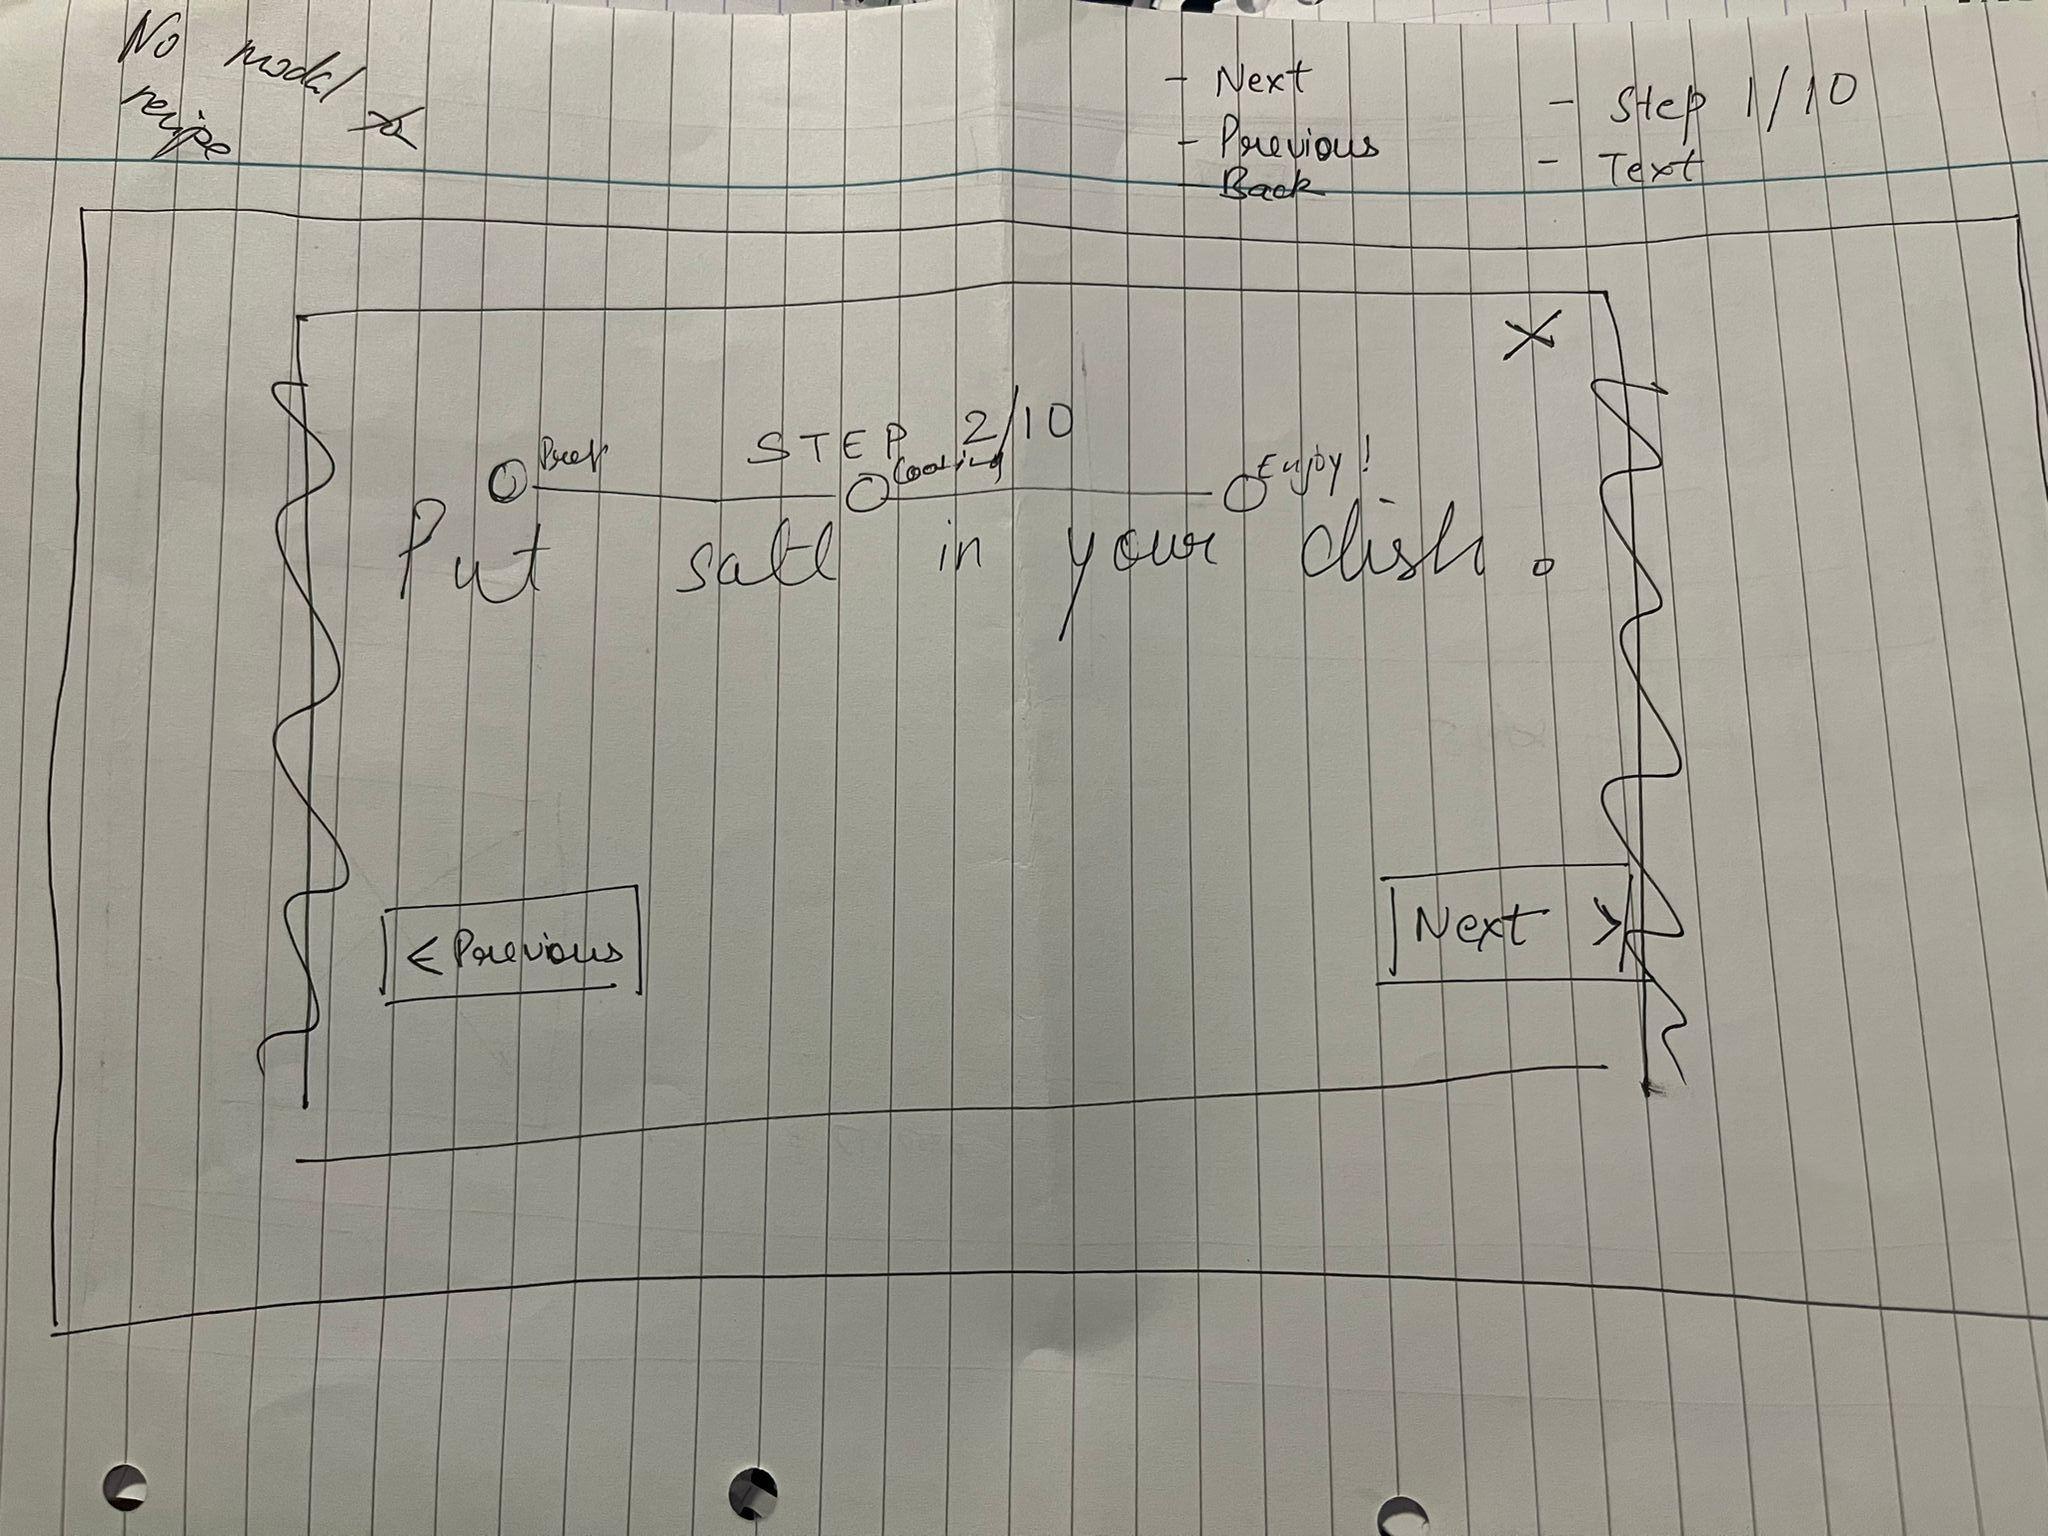 No modal
recipe
- Next
- Previous
- Back
- Step 1/10
- Text
X
STEP 2/10
Prep
Cooking
Enjoy!
Put salt in your dish.
< Previous
Next >